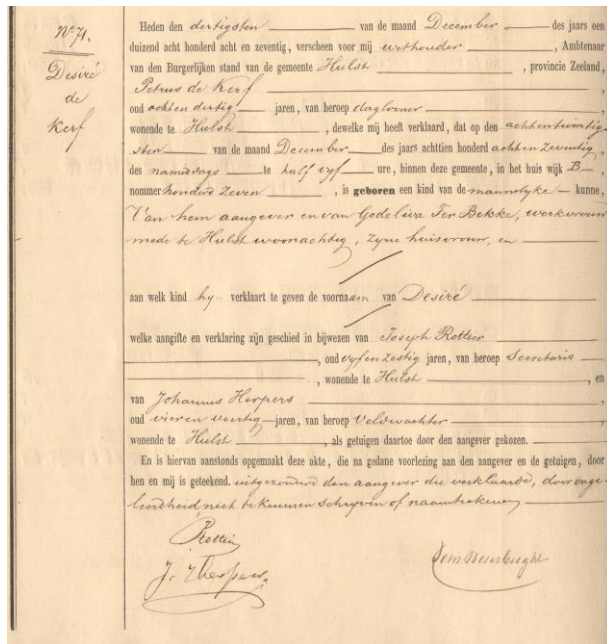 No 71.
Desiré
de
Kerf
Heden den dertigsten van de maand December des jaars een
duizend acht honderd acht en zeventig, verscheen voor mij wethouder, Ambtenaar
van den Burgerlijken stand van de gemeente Hulst, provincie Zeeland,
Petrus de Kerf,
oud acht en dertig jaren, van beroep daglooner,
wonende te Hulst, dewelke mij heeft verklaard, dat op den acht en twintig-
sten van de maand December des jaars achttien honderd acht en zeventig,
des namiddags te half vyf ure, binnen deze gemeente, in het huis wijk B,
nommer honderd zeven, is geboren een kind van de mannelyke kunne,
Van hem aangever en van Godeliva Ter Bekke, werkvrouw
mede te Hulst woonachtig, zyne huisvrouw, en
aan welk kind hy verklaart te geven de voornaam van Desiré
welke aangifte en verklaring zijn geschied in bijwezen van Joseph Rottier
, oud vyf en zestig jaren, van beroep Secretaris
, wonende te Hulst, en
van Johannes Herpers,
oud vier en veertig jaren, van beroep Veldwachter,
wonende te Hulst, als getuigen daartoe door den aangever gekozen.
En is hiervan aanstonds opgemaakt deze akte, die na gedane voorlezing aan den aangever en de getuigen, door
hen en mij is geteekend. uitgezonderd den aangever die verklaarde, door onge-
leerdheid niet te kunnen schryven of naamteekenen
Rottier
J. Herpers